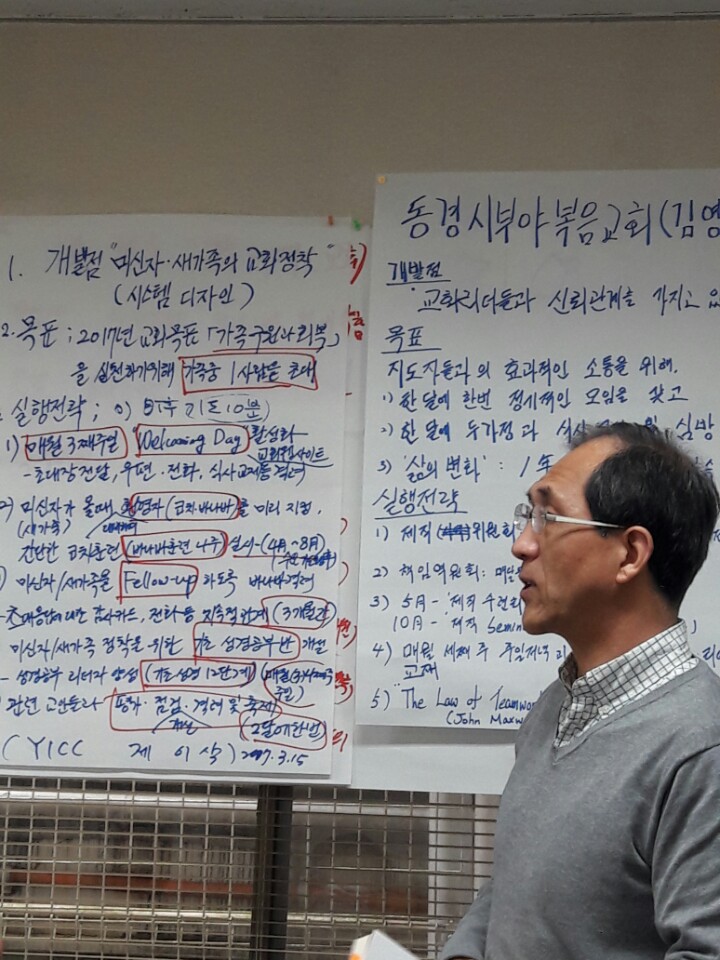 1. 개발점 "미신자·새가족의 교회정착"
(시스템 디자인)
2. 목표 ; 2017년 교회목표 「가족구원과 회복」
을 실천하기위해 가족중 1사람을 초대
실행전략 ; 0) 하루 기도 10분)
1) 매월 3째주일 "Welcoming Day" 활성화
- 초대장전달, 우편·전화, 식사교제
교회웹사이트
미신자가 올때 (코치바나바)를 미리 지정.
(새가족)
간단한 코치훈련 (바나바훈련 나주) 실시-(4月~8月)
미신자/새가족을 Fellow-up 하도록 바나바격려
감사카드, 전화 등 지속적 관계 (3개월간)
미신자/새가족 정착을 위한 기초 성경공부반 개설
- 성경공부 리더자 양성 (기초성경 12단계)
주일)
평가·점검·격려 및 축제
개선
(2달에한번)
(YICC 제 이삭) 2017.3.15
동경시부야복음교회(김영
개발점
교회리더들과 신뢰관계를 가지고 있
목표
지도자들과의 효과적인 소통을 위해.
1) 한달에 한번 정기적인 모임을 갖고
2) 한달에 두가정과 식사 심방
3) '삶의 변화' : 1年
실행전략
1) 제직 위원회
2) 책임역원회: 매달
3) 5月 - 제직 수련회
10月 - 제직 Semin
4) 매월 세째 주 주일저녁 리
교재
5) "The Law of Teamwo
(John Maxw